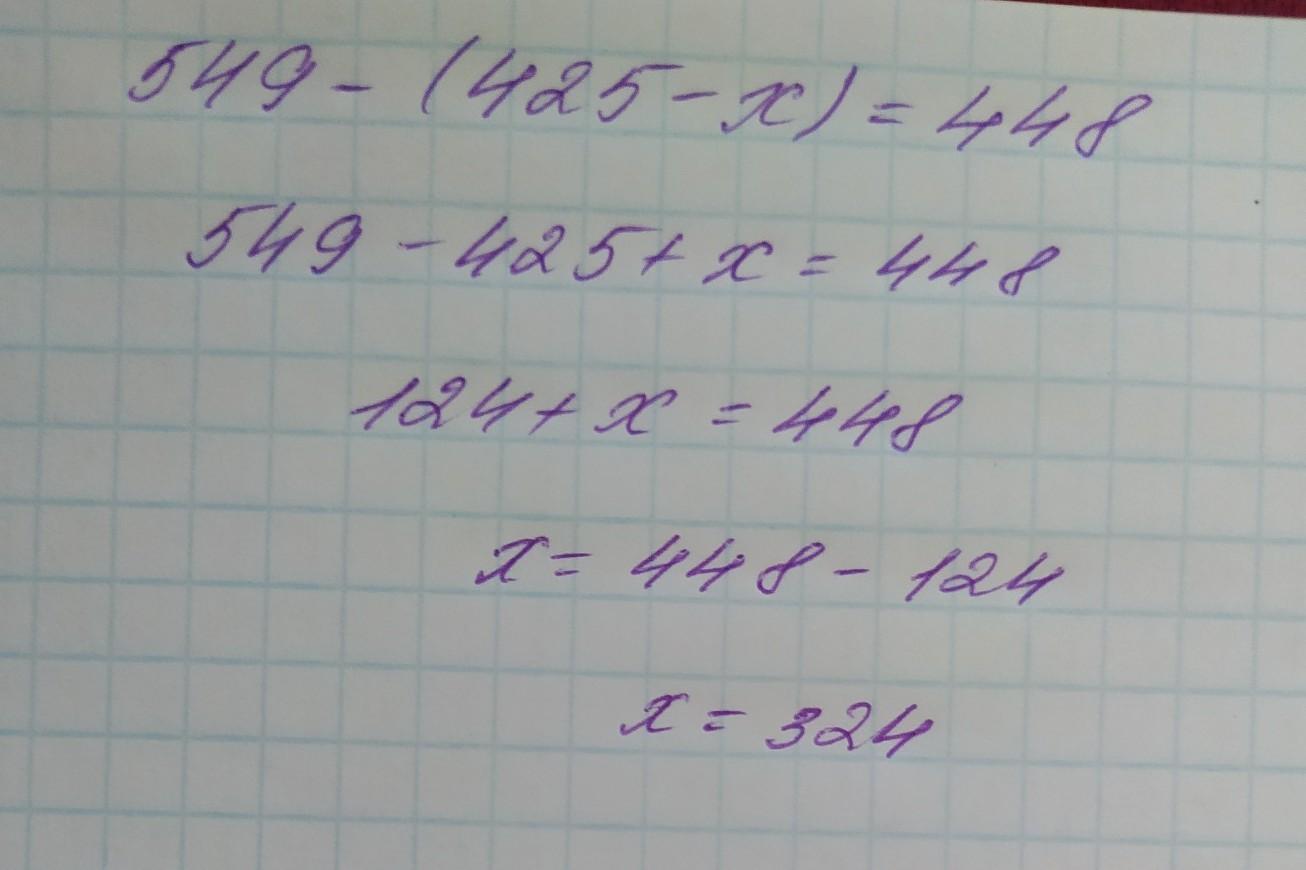 549 - (425 - x) = 448
549 - 425 + x = 448
124 + x = 448
x = 448 - 124
x = 324